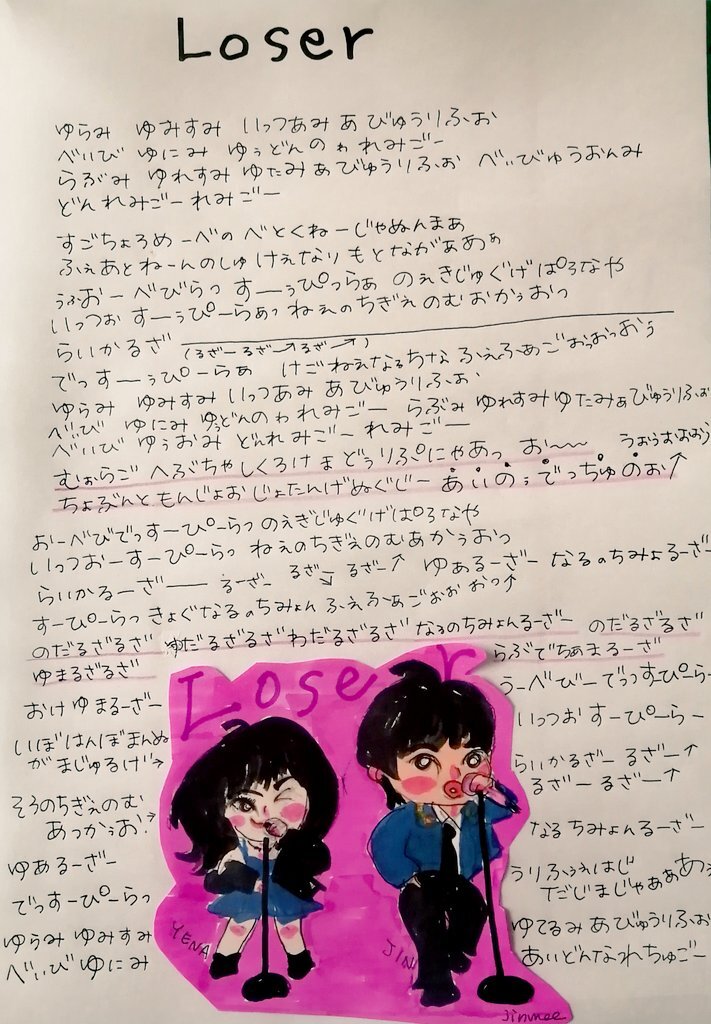 Loser
ゆらみ ゆみすみ いっつあみ あ びゅうりふぉ
べいび ゆにみ ゆぅどんのぉ れみごー
らぶみ ゆれすみ ゆたみ あ びゅうりふぉ べぃびゅうおんみ
どんれみごー れみごー
すごちょろめーべの べとくねーじゃぬんまぁ
ふぇあとねーんのしゅ けえなり もとながぁあぁ
うぉーべびらっ すーぅぴっらぁ のえきじゅぐげぱろなや
いっつぉ すーぅぴーらぁっ ねえのちぎえのむおかぅおっ
らいかるざ (るざーるざーるざー)
でっすーぅぴーらぁ けごねえなるちな ふぇふぁごおぉおっおぅ
ゆらみ ゆみすみ いっつあみ あびゅうりふぉ
べいび ゆにみ ゆぅどんのぉ れみごー らぶみ ゆれすみゆたみぁびゅうりふぉ
べいびゆぅおみ どんれみごー れみごー
むぉらご へぶちゃしくろけま どぅりぷにゃあっ おー うぉぅおおおう
ちょぶんともんじょおじょたんげぬぐじー あいのぅでっちゅのぉ↑
おーべびでっすーぴーらっ のえぎじゅぐげぱろなや
いっつおーすーぴーらっ ねえのちぎえのむあかぅおっ
らいかるーざー るーざー るざー るざー↑ ゆぁるーざー なるのちみょるーざー
すーぴーらっ きょぐなるのちみょん ふぇふぁごぉおおっ↑
のだるざるざ ゆだるざるざわだるざるざ なるのちみょんるーざー のだるざるざ
ゆまるざるざ
らぶでちぁまろーざ
Loser
おけゆまるーざー
うーべびーでっすーぴーらー
いぼはんぼまんぬ
がまじゅるげ→
いっつおすーぴーらー
らいかるざー るざー↑
るざー るざー↑
そろのちぎえのむ
あっかぅお?
なるちみょんるーざー
ゆあるーざー
うりふぇはじ
だじまじゃぁああ
でっすーぴーらっ
ゆらみ ゆみすみ
べぃび ゆにみ
ゆてるみあびゅうりふぉ
あいどんなれちゅごー
YENA
JIN
Jinmee